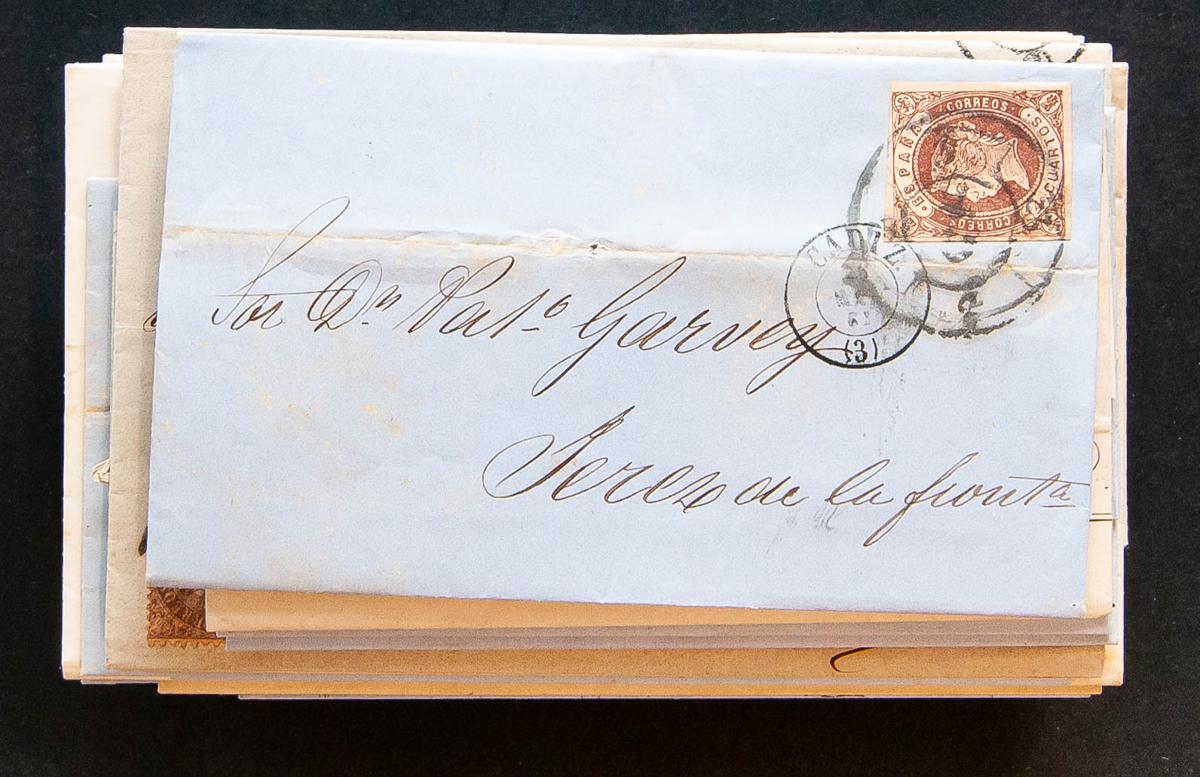 CORREOS
ESPAÑA
CUARTOS
CORREOS
CADIZ
(3)
Sor Dn Pato Garvey
Jerez de la fronta